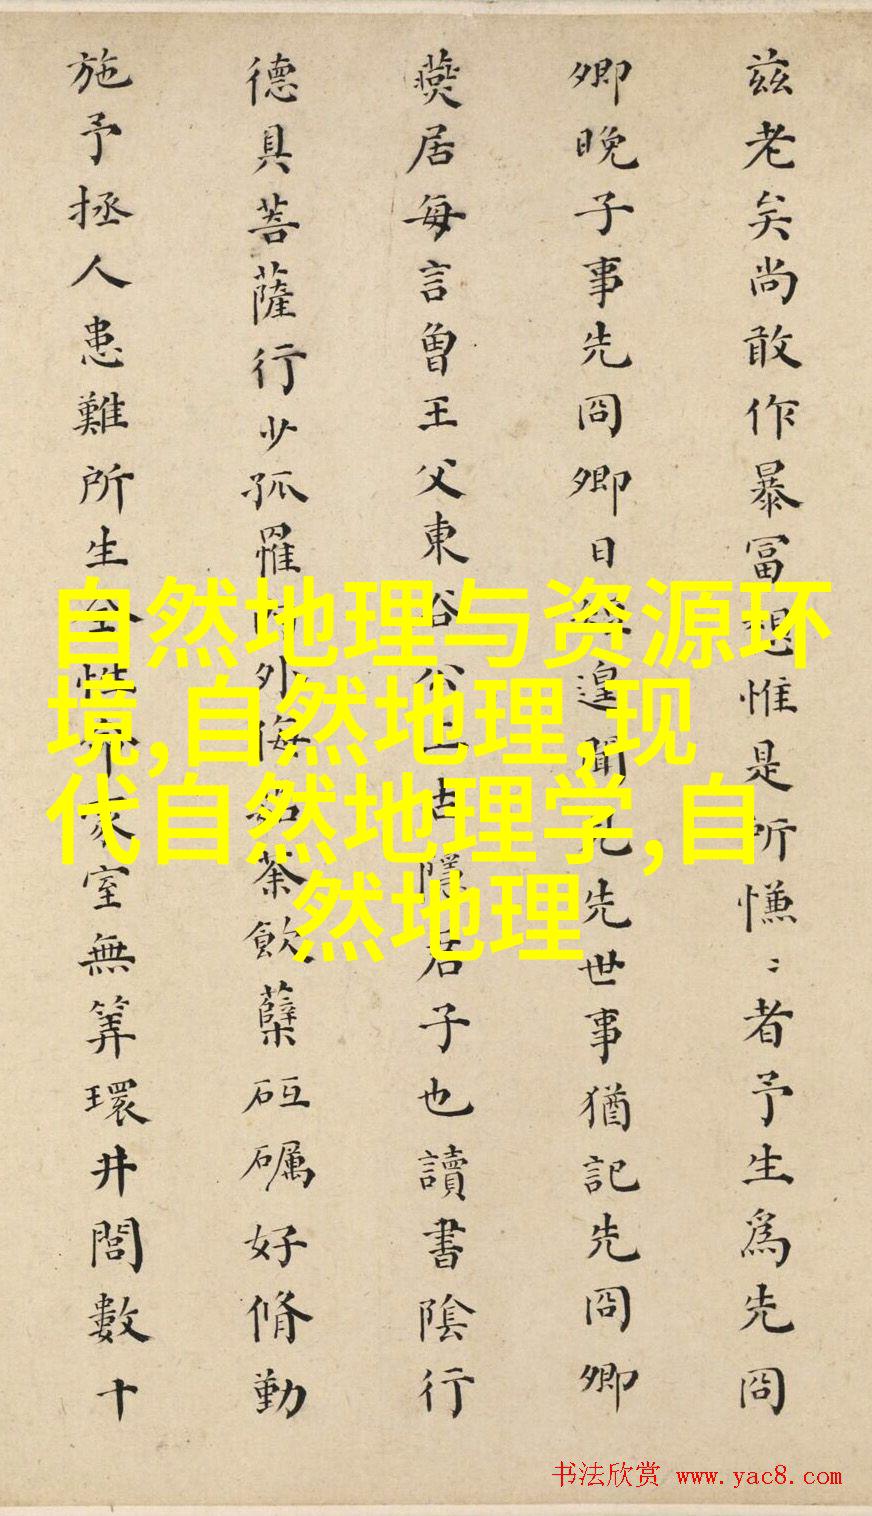 兹老矣尚敢作暴冨想惟是所慊〻者予生為先冏
卿晚子事先冏卿日遑聞先世事猶記先冏卿
燕居每言曾王父東谷公古隱君子也讀書陰行
德具菩薩行少孤罹外侮茹荼飲蘗砥礪好脩勤
施予拯人患難所生全性命家室無筭環井閭數十
自然地理与资源环
境,自然地理,现
代自然地理学,自
然地理
书法欣赏 www.yac8.com